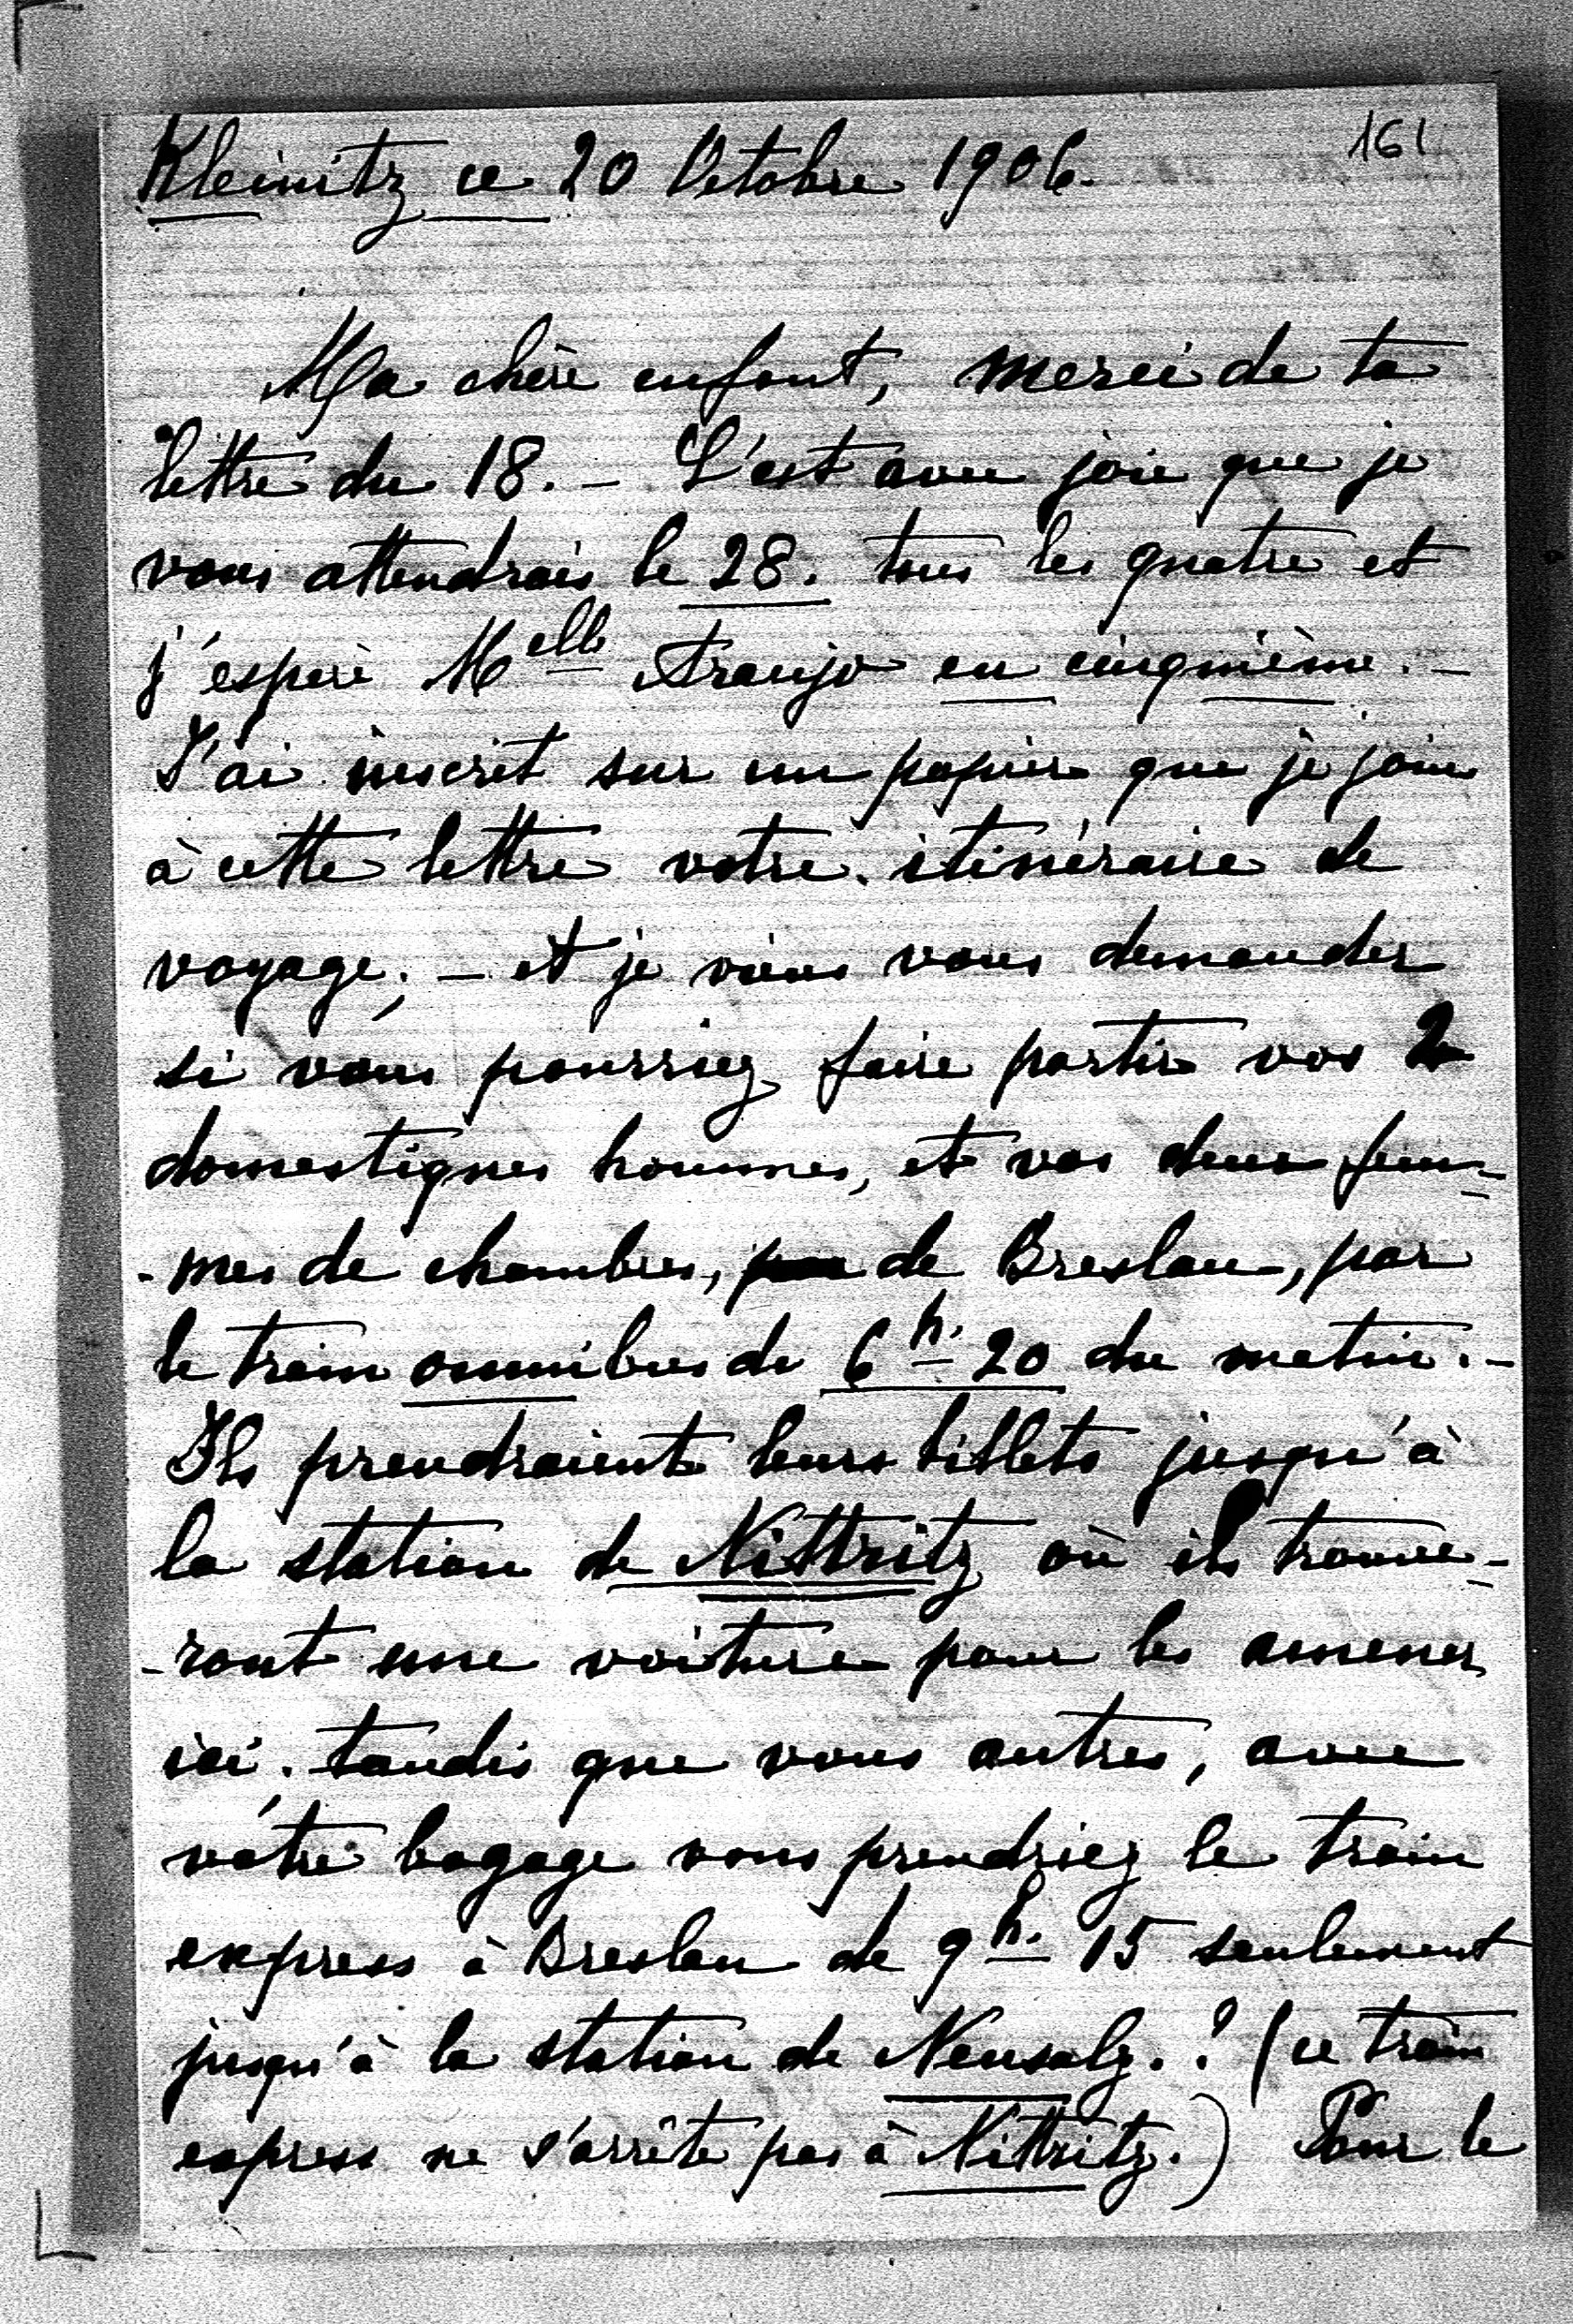 161
Kleinitz ce 20 Octobre 1906.
Ma chère enfant, merci de ta
lettre du 18. – C'est avec joie que je
vous attendrais le 28. tous les quatre et
j'espère Melle Araujo en cinquième. –
J'ai inscrit sur un papier que je joins
à cette lettre votre itinéraire de
voyage; – et je viens vous demander
si vous pourriez faire partir vos 2
domestiques hommes, et vos deux fem-
-mes de chambres, de Breslau, par
le train omnibus de 6h. 20 du matin. –
Ils prendraient leurs billets jusqu'à
la station de Nittritz où ils trouve-
-ront une voiture pour les amener
ici, tandis que vous autres, avec
votre bagage vous prendriez le train
express à Breslau de 9h. 15 seulement
jusqu'à la station de Neusalz. ? (ce train
express ne s'arrête pas à Nittritz.) Pour le